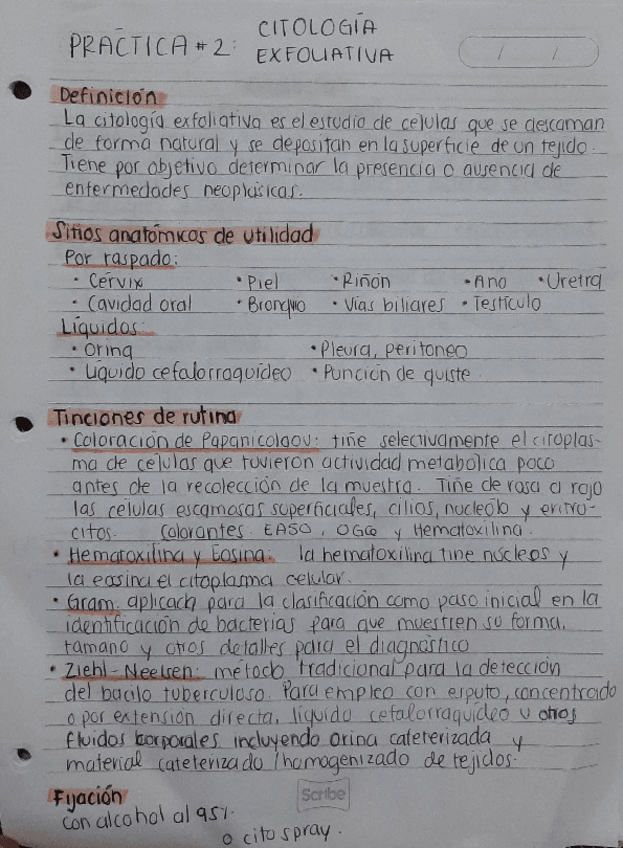 PRÁCTICA # 2: CITOLOGÍA
EXFOLIATIVA
Definición
La citología exfoliativa es el estudio de células que se descaman
de forma natural y se depositan en la superficie de un tejido.
Tiene por objetivo determinar la presencia o ausencia de
enfermedades neoplásicas.
Sitios anatómicos de utilidad
Por raspado:
· Cérvix · Piel · Riñón · Ano · Uretra
· Cavidad oral · Bronquio · Vías biliares · Testículo
Líquidos:
· Orina · Pleura, peritoneo
· Líquido cefalorraquídeo · Punción de quiste
Tinciones de rutina
· Coloración de Papanicolaou: tiñe selectivamente el citoplas-
ma de células que tuvieron actividad metabólica poco
antes de la recolección de la muestra. Tiñe de rosa a rojo
las células escamosas superficiales, cilios, nucleólo y eritro-
citos. Colorantes EA50, OG6 y Hematoxilina.
· Hematoxilina y Eosina: la hematoxilina tiñe núcleos y
la eosina el citoplasma celular.
· Gram: aplicada para la clasificación como paso inicial en la
identificación de bacterias para que muestren su forma,
tamaño y otros detalles para el diagnóstico
· Ziehl-Neelsen: método tradicional para la detección
del bacilo tuberculoso. Para empleo con esputo, concentrado
o por extensión directa, líquido cefalorraquídeo u otros
fluidos corporales incluyendo orina cateterizada y
material cateterizado / homogenizado de tejidos.
Fijación
con alcohol al 95%
o cito spray.
Scribe